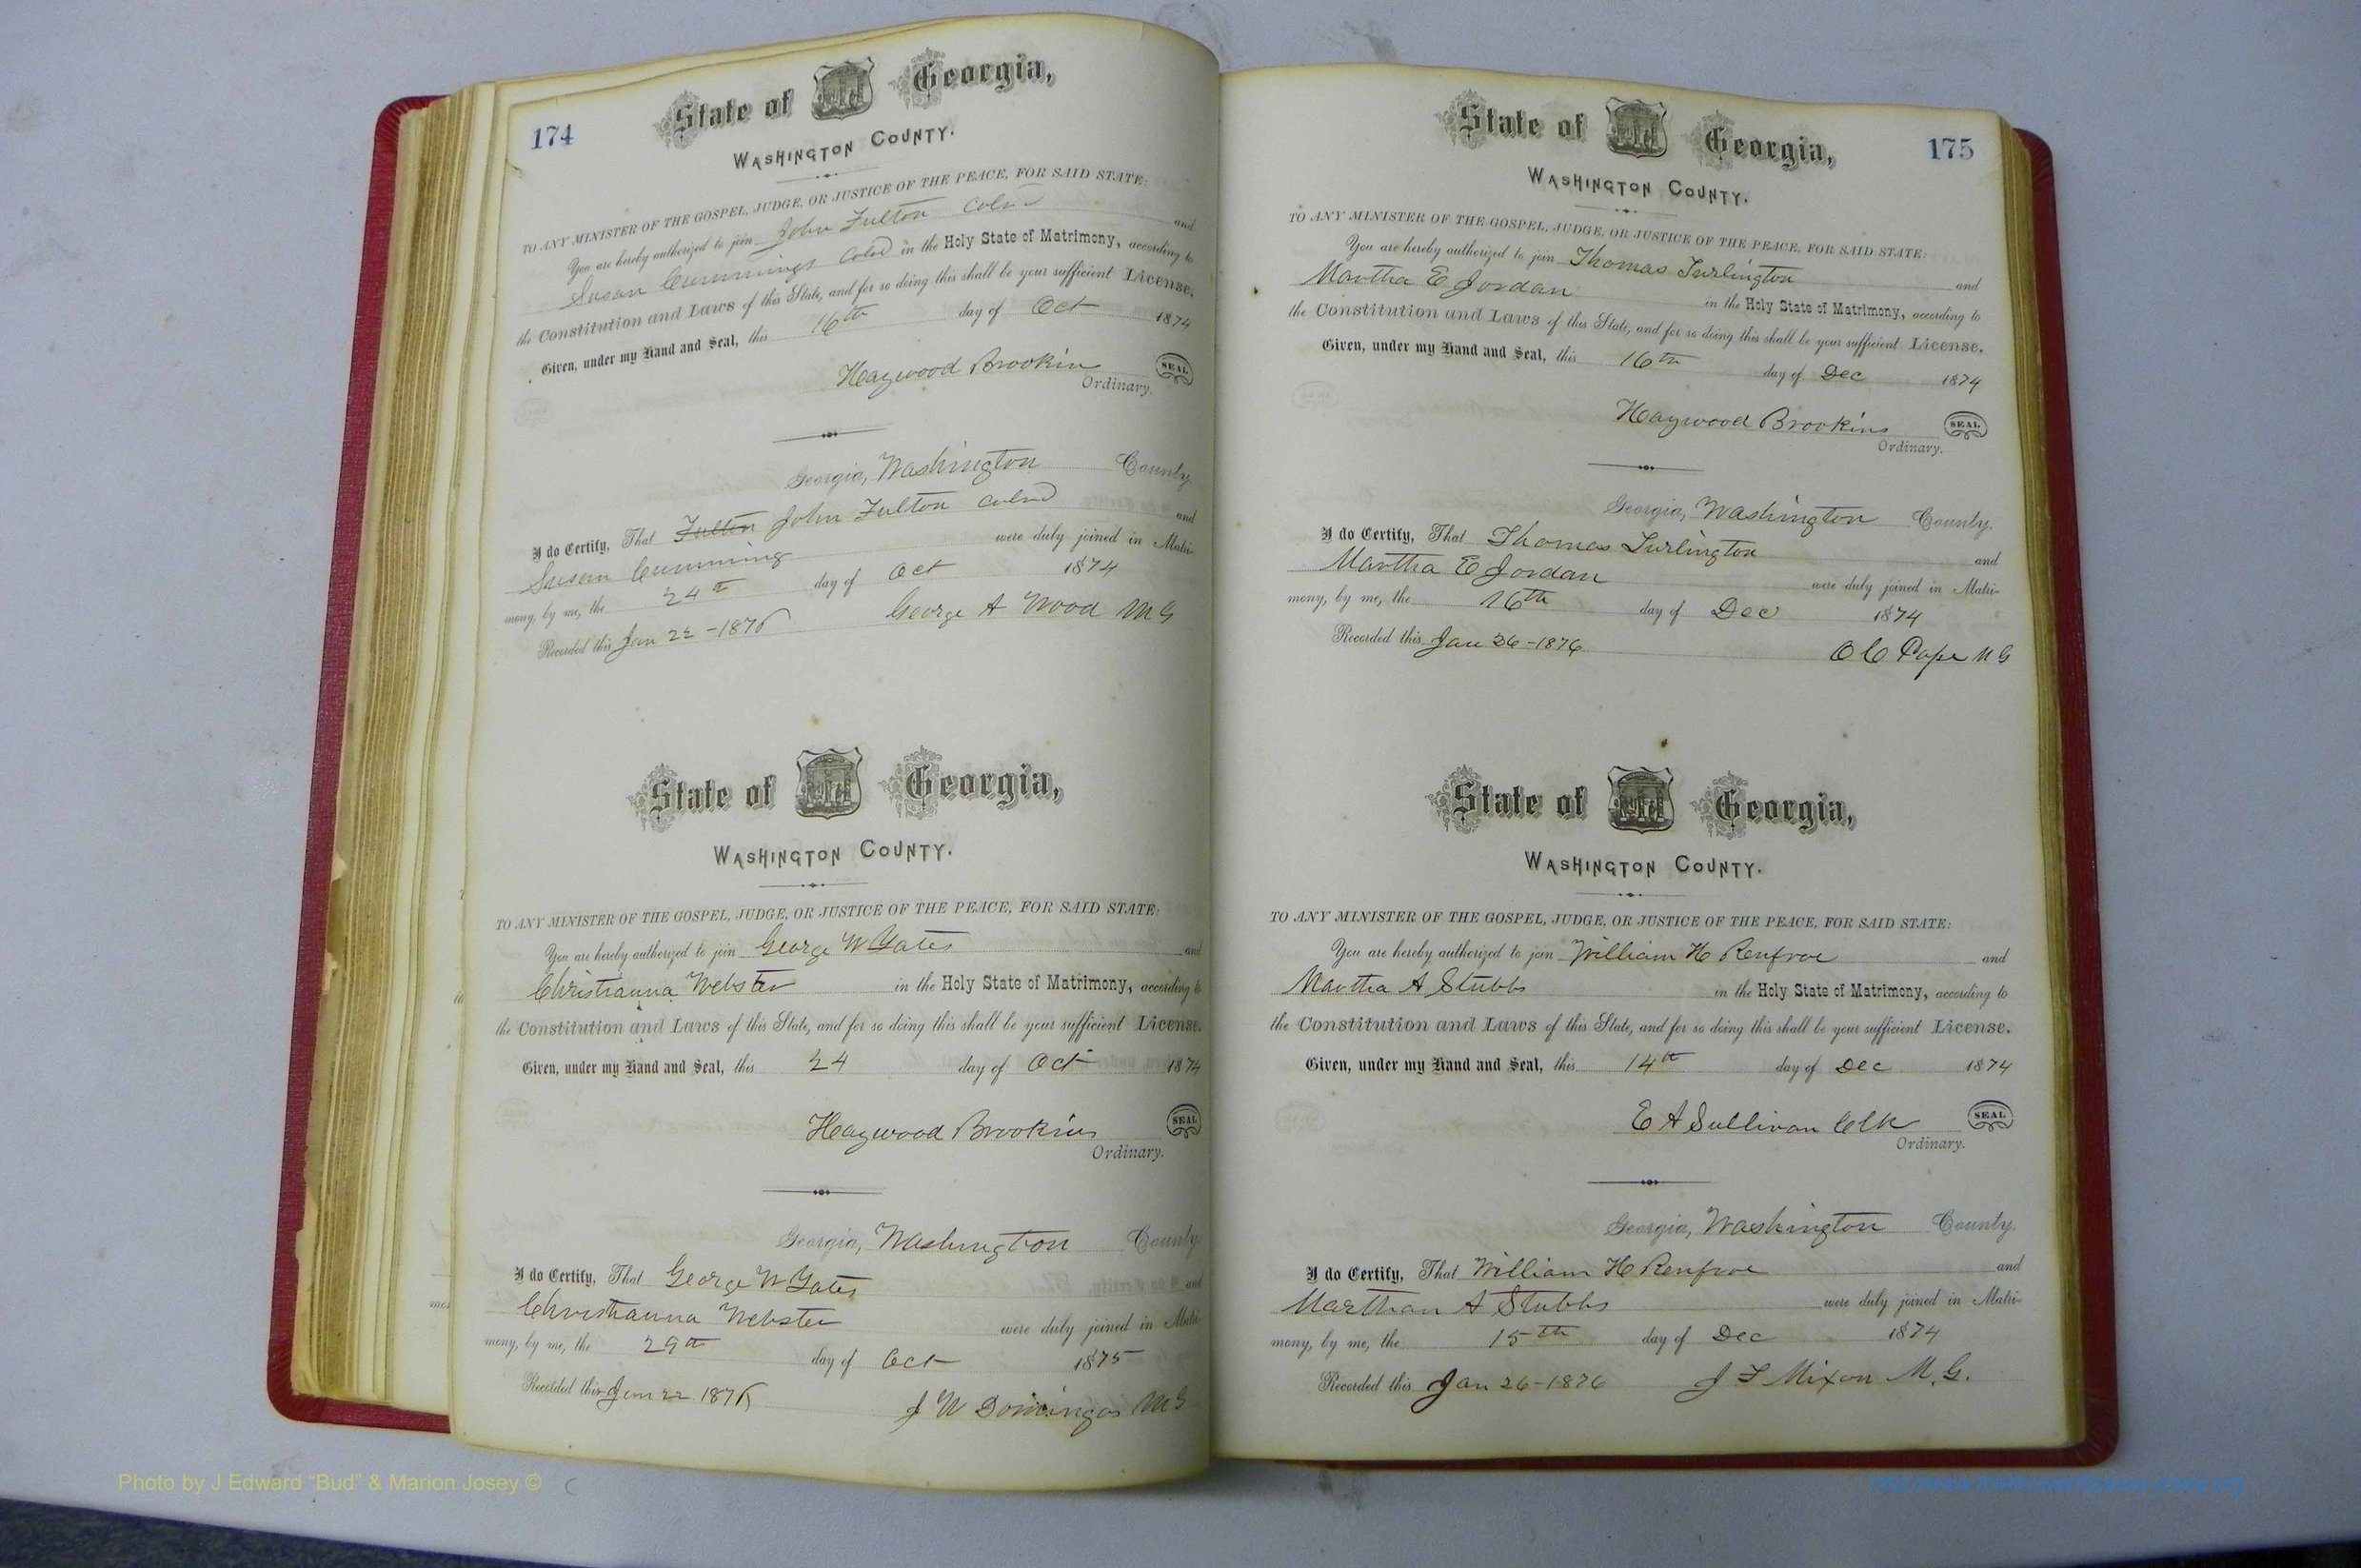 174
State of Georgia,
WASHINGTON COUNTY.
TO ANY MINISTER OF THE GOSPEL, JUDGE, OR JUSTICE OF THE PEACE, FOR SAID STATE:
You are hereby authorized to join John Fulton Cold and
Susan Cummings Cold in the Holy State of Matrimony, according to
the Constitution and Laws of this State, and for so doing this shall be your sufficient License.
Given, under my Hand and Seal, this 16th day of Oct 1874
Haywood Brookins SEAL
Ordinary.
Georgia, Washington County.
I do Certify, That Fulton John Fulton Colrd and
Susan Cumming were duly joined in Matri-
mony, by me, the 24th day of Oct 1874
Recorded this Jan 22-1876 George A Wood M G
State of Georgia,
WASHINGTON COUNTY.
TO ANY MINISTER OF THE GOSPEL, JUDGE, OR JUSTICE OF THE PEACE, FOR SAID STATE:
You are hereby authorized to join George W Yates and
Christianna Webster in the Holy State of Matrimony, according to
the Constitution and Laws of this State, and for so doing this shall be your sufficient License.
Given, under my Hand and Seal, this 24 day of Oct 1874
Haywood Brookins SEAL
Ordinary.
Georgia, Washington County
I do Certify, That George W Yates and
Christianna Webster were duly joined in Matri-
mony, by me, the 29th day of Oct 1875
Recorded this Jan 22 1876 J W Domingos M G
175
State of Georgia,
WASHINGTON COUNTY.
TO ANY MINISTER OF THE GOSPEL, JUDGE, OR JUSTICE OF THE PEACE, FOR SAID STATE:
You are hereby authorized to join Thomas Turlington and
Martha E Jordan in the Holy State of Matrimony, according to
the Constitution and Laws of this State, and for so doing this shall be your sufficient License.
Given, under my Hand and Seal, this 16th day of Dec 1874
Haywood Brookins SEAL
Ordinary.
Georgia, Washington County.
I do Certify, That Thomas Turlington and
Martha E Jordan were duly joined in Matri-
mony, by me, the 16th day of Dec 1874
Recorded this Jan 26-1876 O C Pope M G
State of Georgia,
WASHINGTON COUNTY.
TO ANY MINISTER OF THE GOSPEL, JUDGE, OR JUSTICE OF THE PEACE, FOR SAID STATE:
You are hereby authorized to join William H Renfroe and
Martha A Stubbs in the Holy State of Matrimony, according to
the Constitution and Laws of this State, and for so doing this shall be your sufficient License.
Given, under my Hand and Seal, this 14th day of Dec 1874
E A Sullivan Clk SEAL
Ordinary.
Georgia, Washington County.
I do Certify, That William H Renfroe and
Marthan A Stubbs were duly joined in Matri-
mony, by me, the 15th day of Dec 1874
Recorded this Jan 26-1876 J F Mixon M. G.
Photo by J Edward "Bud" & Marion Josey ©